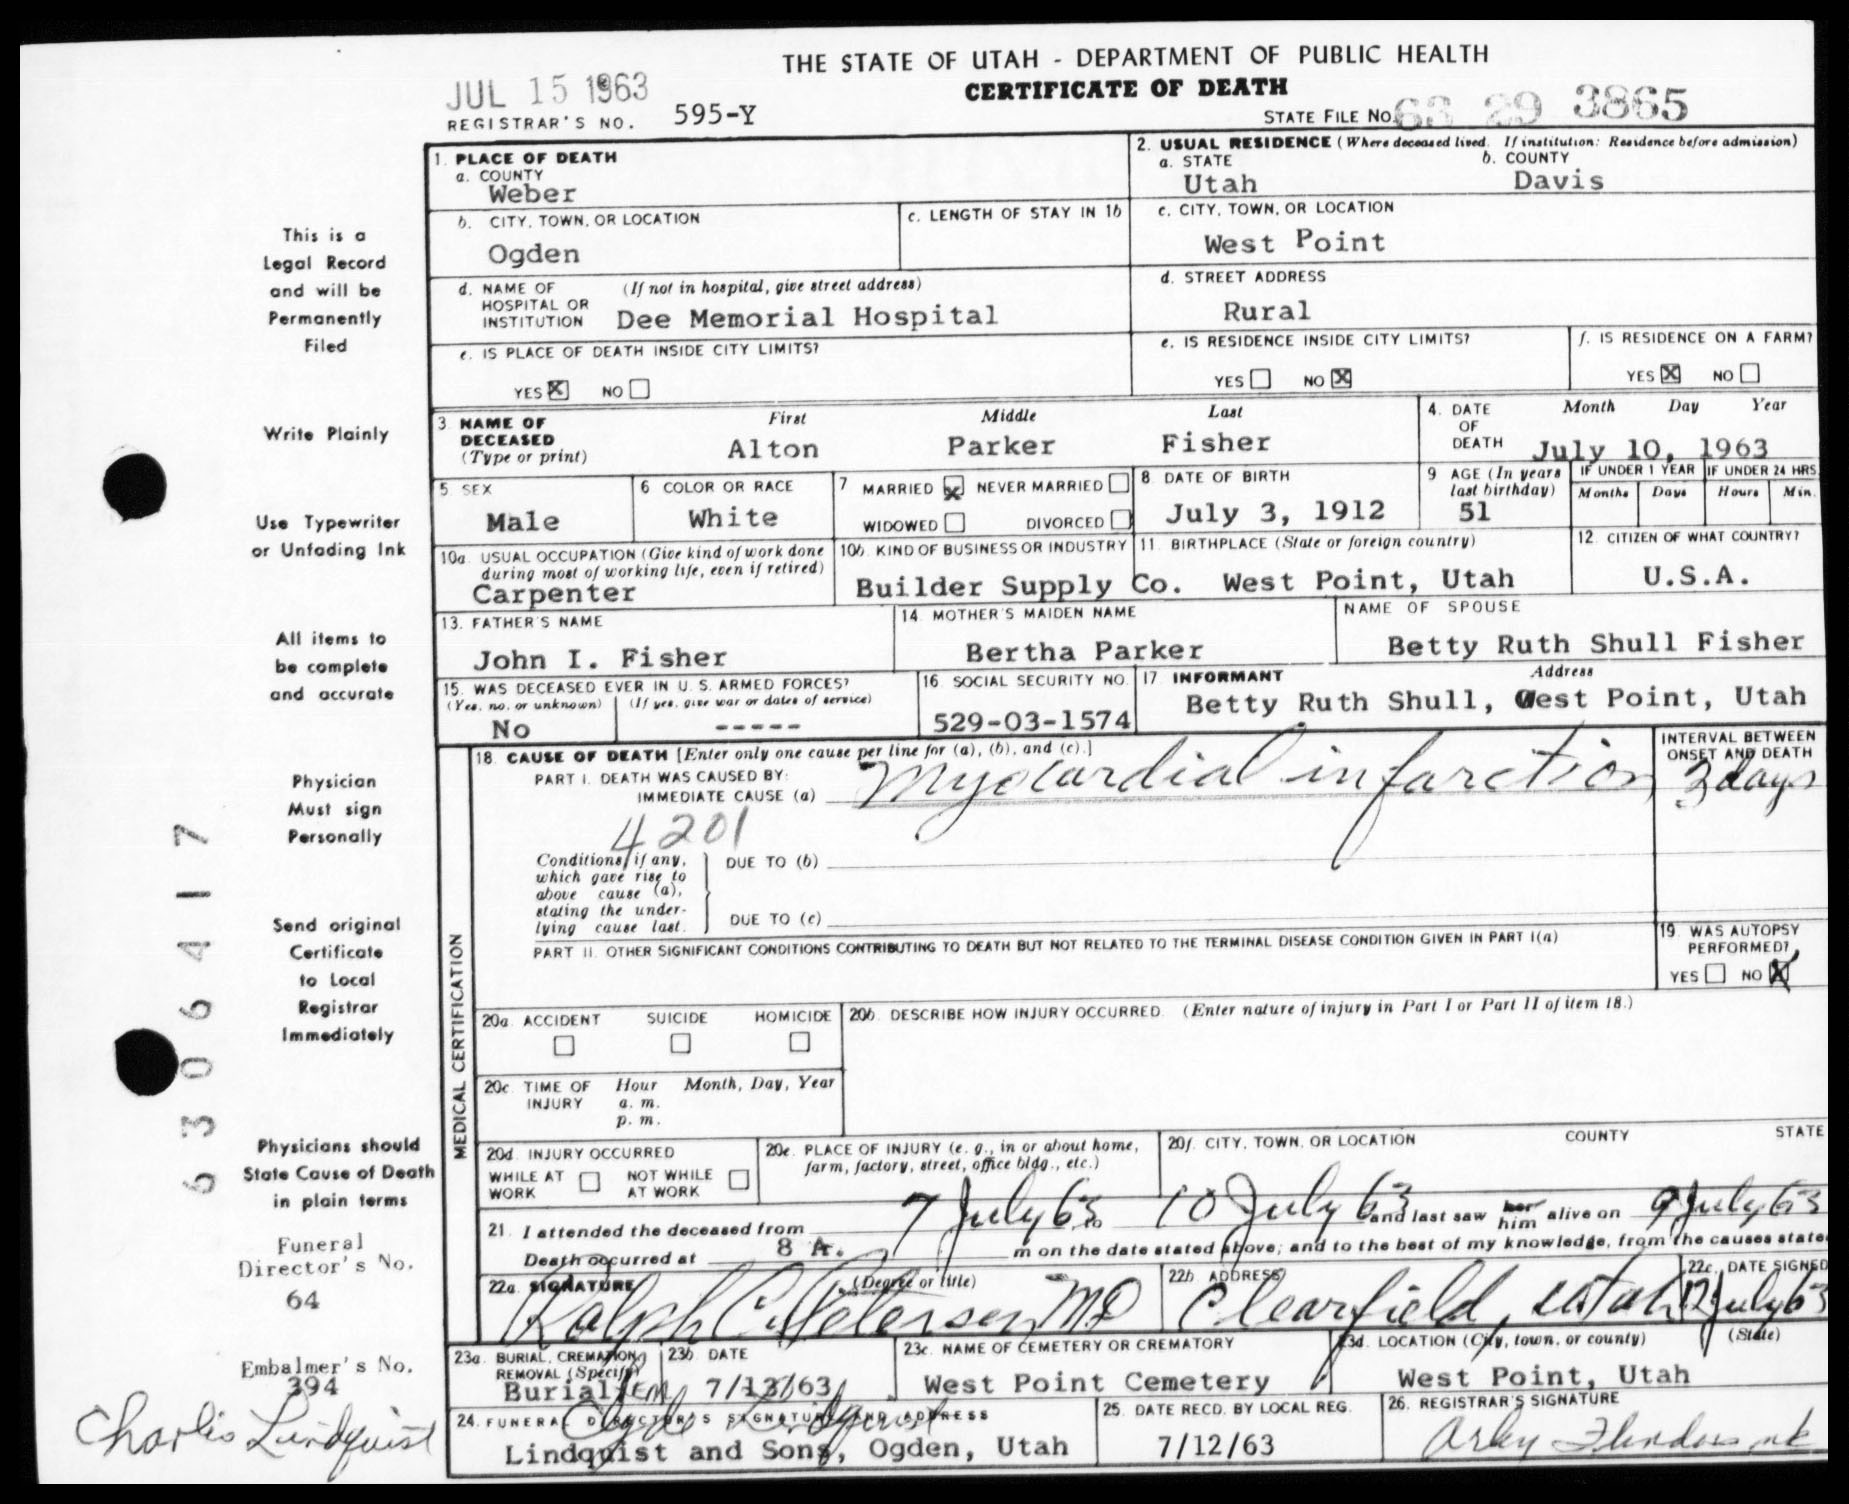 THE STATE OF UTAH - DEPARTMENT OF PUBLIC HEALTH
CERTIFICATE OF DEATH
JUL 15 1963
REGISTRAR'S NO. 595-Y
STATE FILE NO. 63 29 3865
1. PLACE OF DEATH
a. COUNTY
Weber
2. USUAL RESIDENCE (Where deceased lived. If institution: Residence before admission)
a. STATE b. COUNTY
Utah Davis
b. CITY, TOWN, OR LOCATION
Ogden
c. LENGTH OF STAY IN 1b
c. CITY, TOWN, OR LOCATION
West Point
d. NAME OF (If not in hospital, give street address)
HOSPITAL OR
INSTITUTION Dee Memorial Hospital
d. STREET ADDRESS
Rural
e. IS PLACE OF DEATH INSIDE CITY LIMITS?
YES X NO
e. IS RESIDENCE INSIDE CITY LIMITS?
YES NO X
f. IS RESIDENCE ON A FARM?
YES X NO
3. NAME OF DECEASED (Type or print)
First Middle Last
Alton Parker Fisher
4. DATE OF DEATH Month Day Year
July 10, 1963
5. SEX
Male
6. COLOR OR RACE
White
7. MARRIED X NEVER MARRIED
WIDOWED DIVORCED
8. DATE OF BIRTH
July 3, 1912
9. AGE (In years last birthday)
51
IF UNDER 1 YEAR
Months Days
IF UNDER 24 HRS
Hours Min.
10a. USUAL OCCUPATION (Give kind of work done
during most of working life, even if retired)
Carpenter
10b. KIND OF BUSINESS OR INDUSTRY
Builder Supply Co.
11. BIRTHPLACE (State or foreign country)
West Point, Utah
12. CITIZEN OF WHAT COUNTRY?
U.S.A.
13. FATHER'S NAME
John I. Fisher
14. MOTHER'S MAIDEN NAME
Bertha Parker
NAME OF SPOUSE
Betty Ruth Shull Fisher
15. WAS DECEASED EVER IN U. S. ARMED FORCES?
(Yes, no, or unknown) (If yes, give war or dates of service)
No -----
16. SOCIAL SECURITY NO.
529-03-1574
17. INFORMANT Address
Betty Ruth Shull, West Point, Utah
MEDICAL CERTIFICATION
18. CAUSE OF DEATH [Enter only one cause per line for (a), (b), and (c).]
PART I. DEATH WAS CAUSED BY:
IMMEDIATE CAUSE (a) Myocardial infarction
INTERVAL BETWEEN
ONSET AND DEATH
3 days
4201
Conditions, if any,
which gave rise to
above cause (a),
stating the under-
lying cause last.
DUE TO (b)
DUE TO (c)
PART II. OTHER SIGNIFICANT CONDITIONS CONTRIBUTING TO DEATH BUT NOT RELATED TO THE TERMINAL DISEASE CONDITION GIVEN IN PART I(a)
19. WAS AUTOPSY
PERFORMED?
YES NO X
20a. ACCIDENT SUICIDE HOMICIDE
20b. DESCRIBE HOW INJURY OCCURRED. (Enter nature of injury in Part I or Part II of item 18.)
20c. TIME OF INJURY Hour Month, Day, Year
a. m.
p. m.
20d. INJURY OCCURRED
WHILE AT WORK NOT WHILE AT WORK
20e. PLACE OF INJURY (e. g., in or about home,
farm, factory, street, office bldg., etc.)
20f. CITY, TOWN, OR LOCATION COUNTY STATE
21. I attended the deceased from 7 July 63 to 10 July 63 and last saw her him alive on 9 July 63
Death occurred at 8 A. m on the date stated above; and to the best of my knowledge, from the causes state
22a. SIGNATURE (Degree or title)
Ralph C. Petersen MD
22b. ADDRESS
Clearfield, Utah
22c. DATE SIGNED
12 July 63
23a. BURIAL, CREMATION, REMOVAL (Specify)
Burial EM
23b. DATE
7/13/63
23c. NAME OF CEMETERY OR CREMATORY
West Point Cemetery
23d. LOCATION (City, town, or county) (State)
West Point, Utah
24. FUNERAL DIRECTOR'S SIGNATURE AND ADDRESS
Clyde Lindquist
Lindquist and Sons, Ogden, Utah
25. DATE RECD. BY LOCAL REG.
7/12/63
26. REGISTRAR'S SIGNATURE
This is a
Legal Record
and will be
Permanently
Filed
Write Plainly
Use Typewriter
or Unfading Ink
All items to
be complete
and accurate
Physician
Must sign
Personally
Send original
Certificate
to Local
Registrar
Immediately
Physicians should
State Cause of Death
in plain terms
Funeral
Director's No.
64
Embalmer's No.
394
Charlis Lindquist
6306417